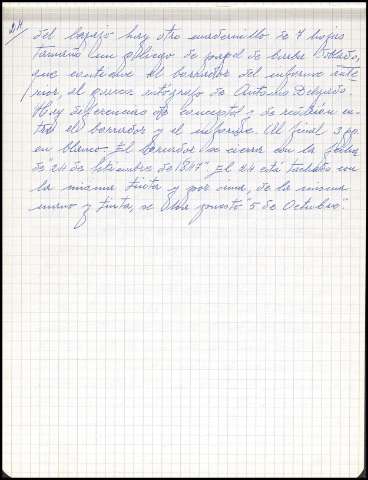 24
del legajo hay otro cuadernillo de 7 hojas
tamaño un pliego de papel de barba doblado,
que contiene el borrador del informe ante
rior, al parecer autógrafo de Antonio Delgado.
Hay diferencias de concepto y de redacción en-
tre el borrador y el informe. Al final 3 pp.
en blanco. El borrador se cierra con la fecha
de "24 de Setiembre de 1847". El 24 está tachado con
la misma tinta y por cima, de la misma
mano y tinta, se puesto "5 de Octubre".